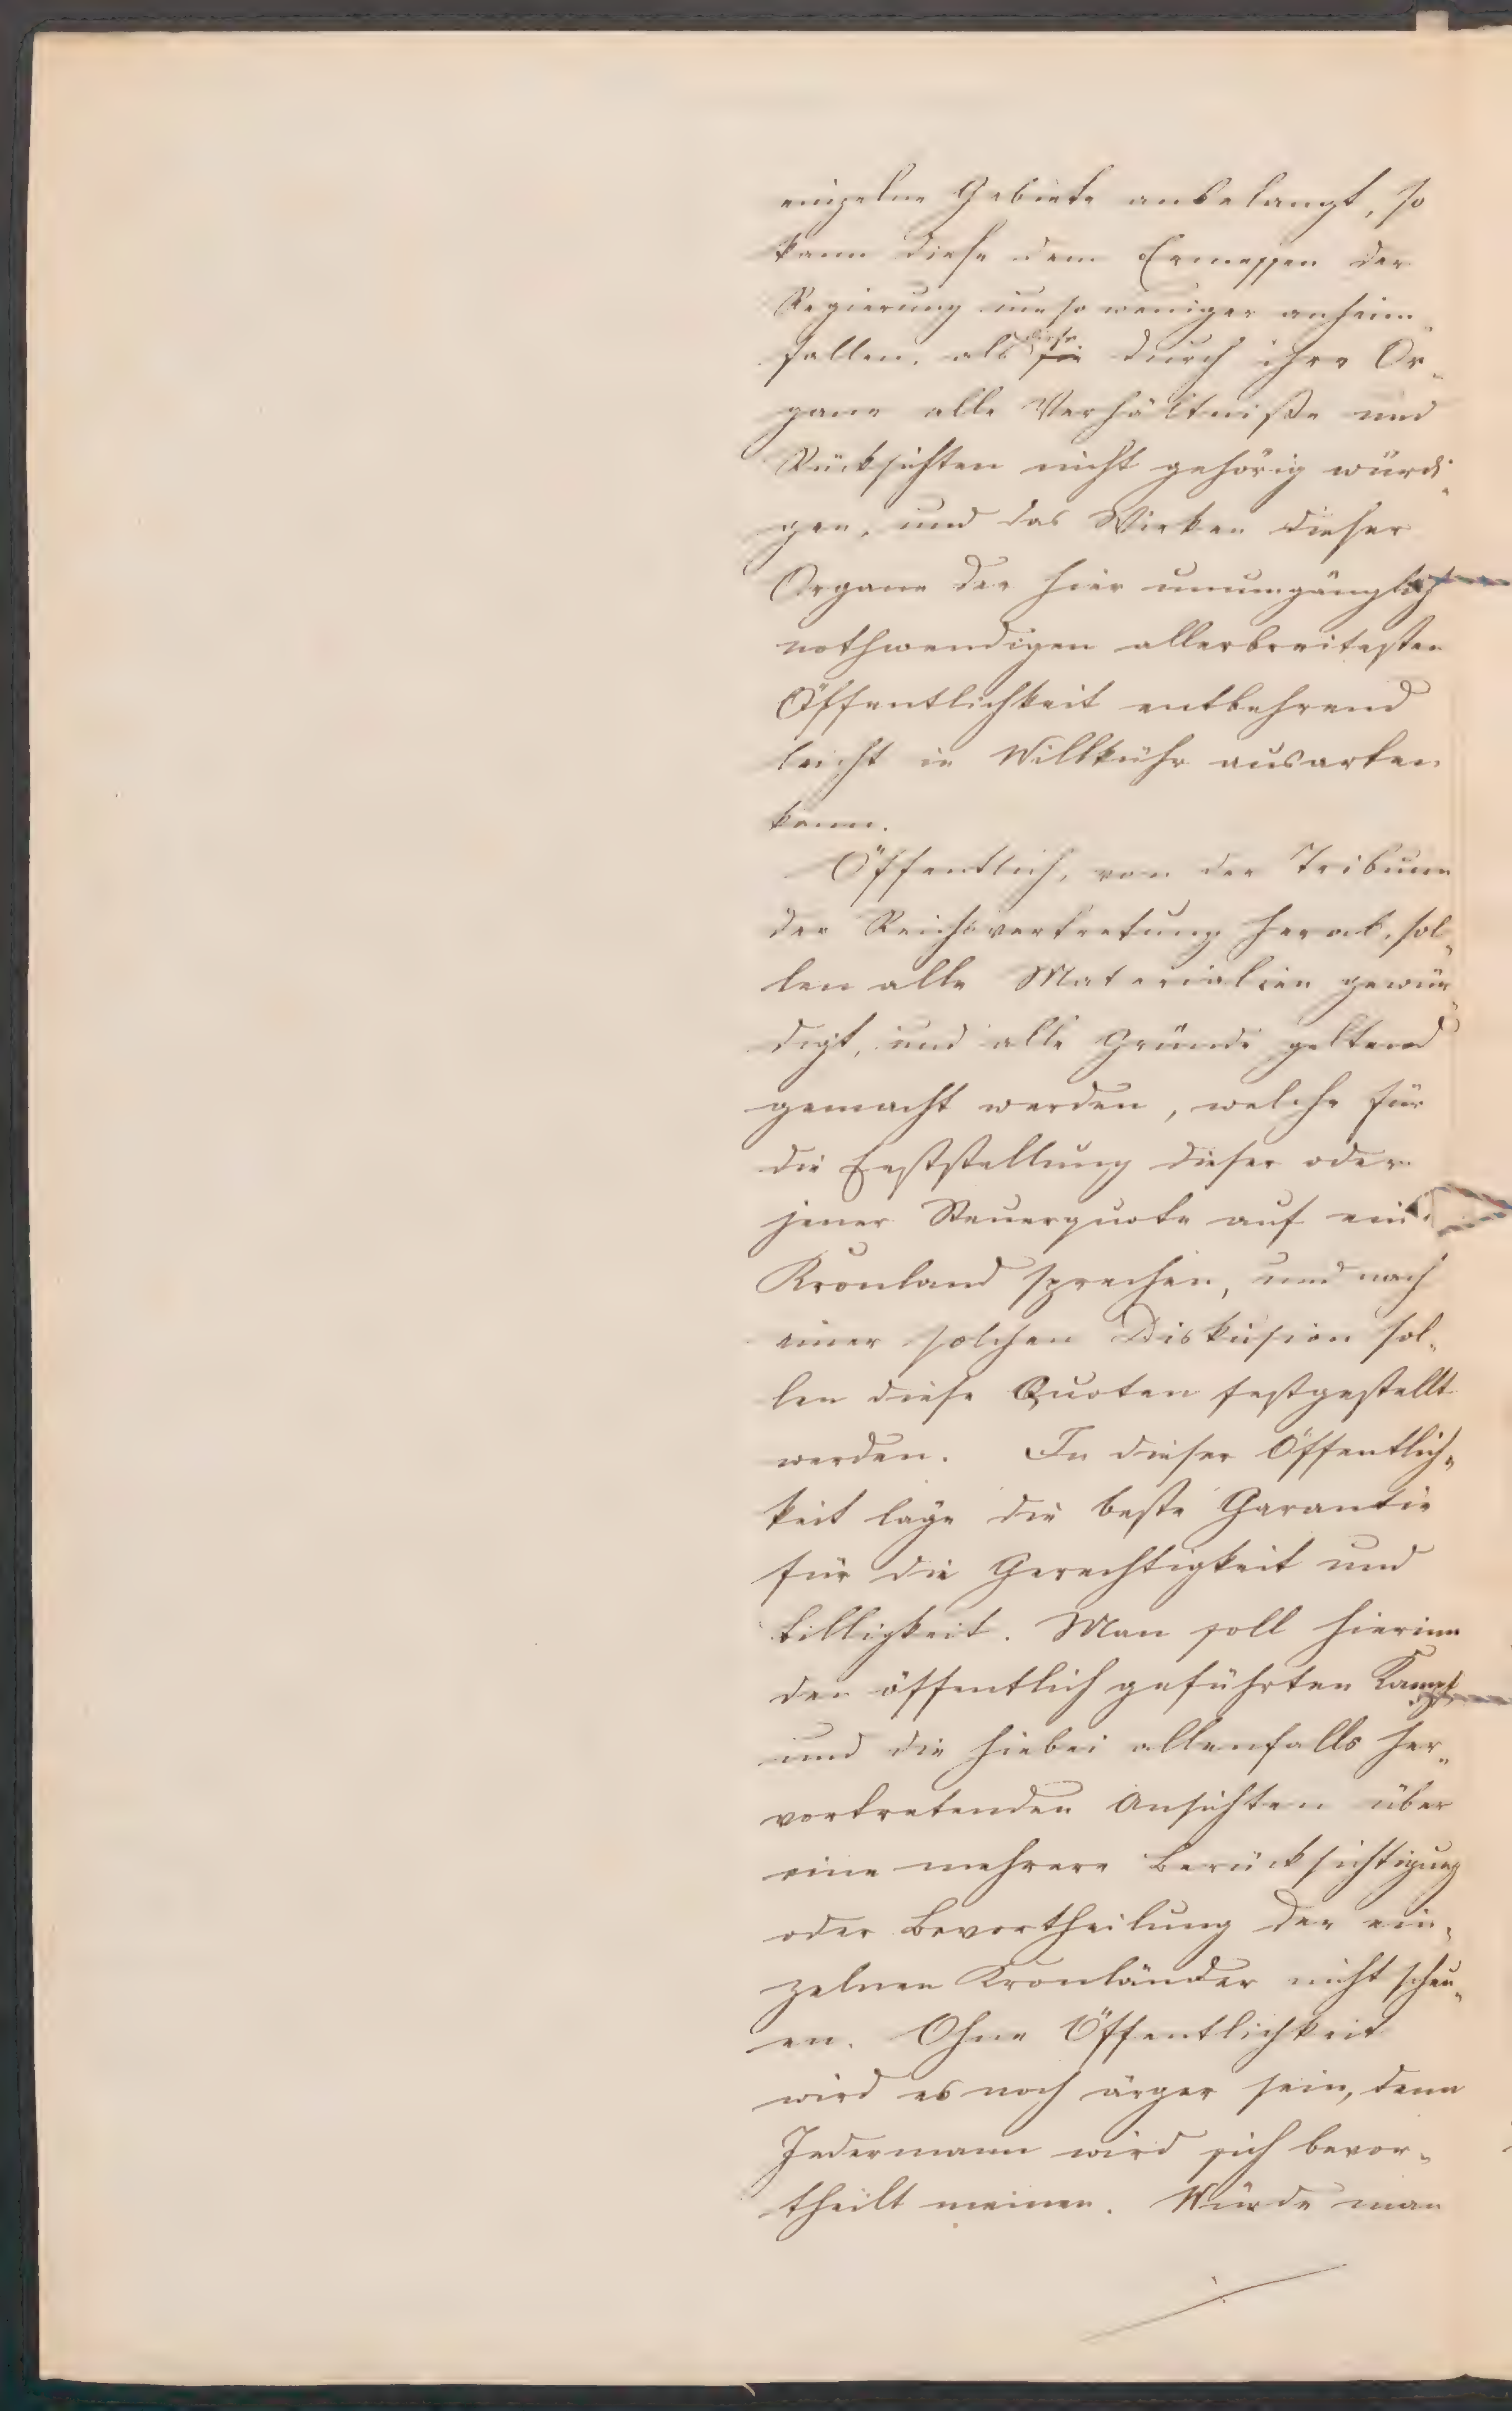 einzelne Gebiete anbelangt, so
kann diese dem Ermessen der
Regierung umso weniger anheim„
fallen, als diese durch ihre Or„
gane alle Verhältniße und
Rücksichten nicht gehörig würdi„
gen, und das Wirken dieser
Organe der hier unumgänglich
nothwendigen allerbreitesten
Öffentlichkeit entbehrend
leicht in Willkühr ausarten
kann.
Öffentlich, von der Tribune
der Reichsvertretung herab, sol„
len alle Materialien gewür„
digt, und alle Gründe geltend
gemacht werden, welche für
die Feststellung dieser oder
jener Steuerquote auf ein
Kronland sprechen, und nach
einer solchen Diskusion sol„
len diese Quoten festgestellt
werden. In dieser Öffentlich„
keit läge die beste Garantie
für die Gerechtigkeit und
Billigkeit. Man soll hierinn
den öffentlich geführten Kampf
und die hiebei allenfalls her„
vortretenden Ansichten über
eine mehrere Berücksichtigung
oder Bevortheilung der ein„
zelnen Kronländer nicht scheu„
en. Ohne Öffentlichkeit
wird es noch ärger sein, denn
Jedermann wird sich bevor„
theilt meinen. Würde man